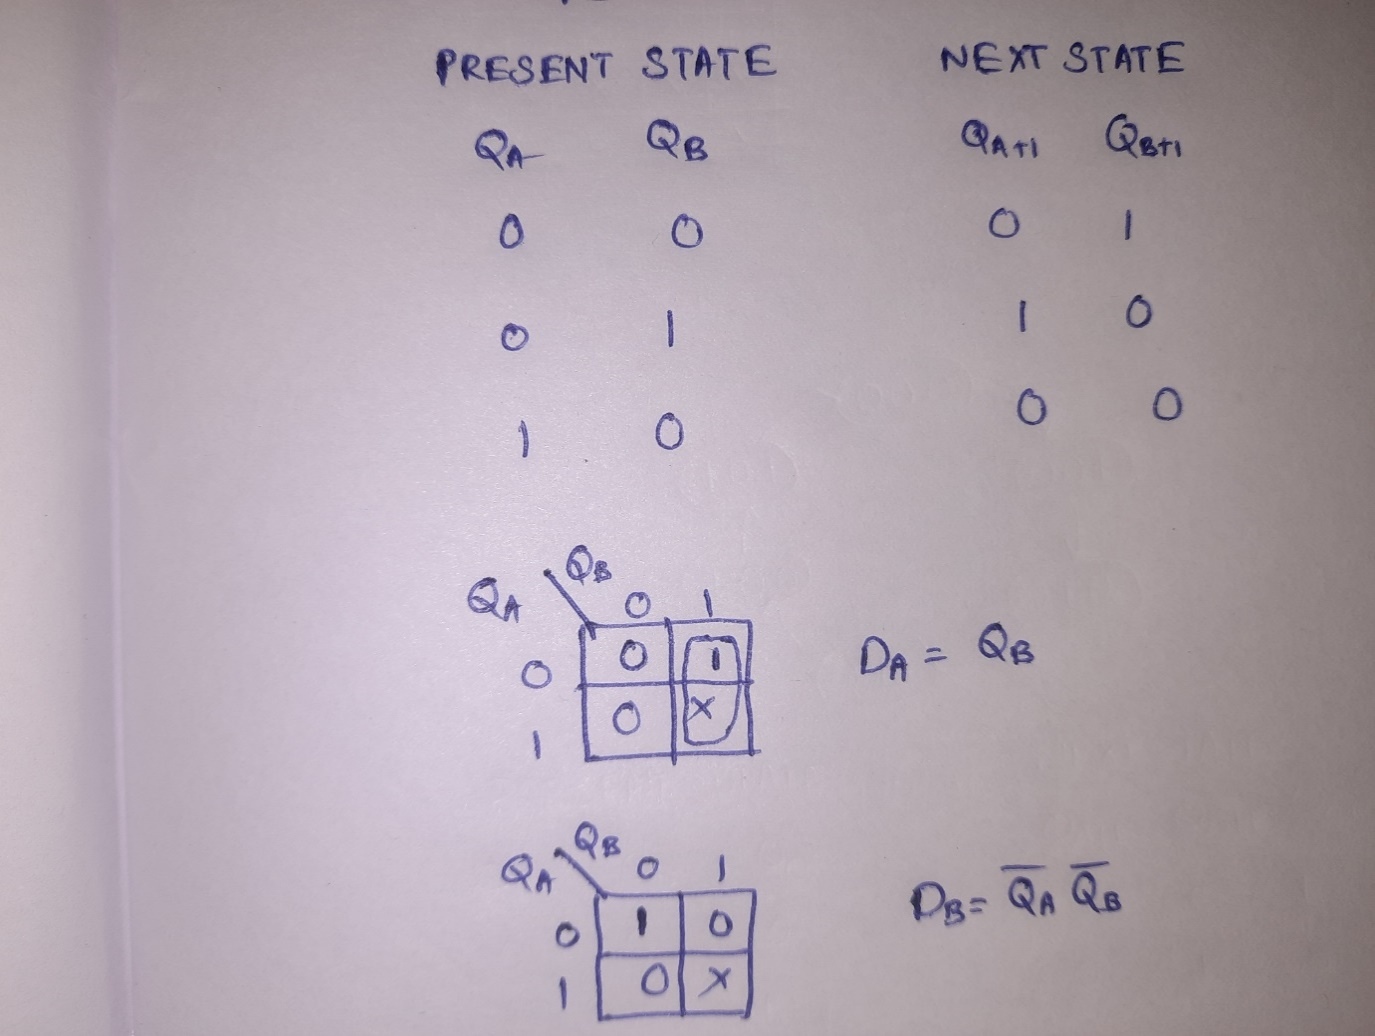 PRESENT STATE NEXT STATE
QA QB QA+1 QB+1
0 0 0 1
0 1 1 0
1 0 0 0
QA QB
0 1
0 0 1
1 0 X
DA = QB
QA QB
0 1
0 1 0
1 0 X
DB = Q̅A Q̅B